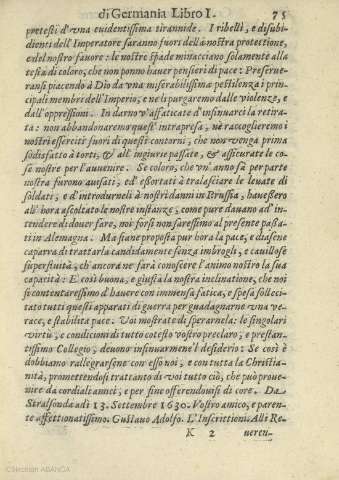 di Germania Libro I. 75
pretesti d'vna euidentissima tirannide. I ribelli, e disubi-
dienti dell'Imperatore saranno fuori della nostra protettione,
e del nostro fauore: le nostre spade minacciano solamente alla
testa di coloro, che non ponno hauer pensieri di pace: Preserue-
ransi piacendo à Dio da vna miserabilissima pestilenza i prin-
cipali membri dell'Imperio, e ne li purgaremo dalle violenze, e
dall'oppressioni. In darno v'affaticate d'insinuarci la retira-
ta: non abbandonaremo quest' intrapresa, nè raccoglieremo i
nostri esserciti fuori di questi contorni, che non venga prima
sodisfatto à torti, & all' ingiurie passate, & assicurate le co-
se nostre per l'auuenire. Se coloro, che vn' anno sà per parte
nostra furono auisati, ed essortati à tralasciare le leuate di
soldati, e d'introdurneli à nostri danni in Prussia, hauessero
all' hora ascoltato le nostre instanze, come pure dauano ad in-
tendere di douer fare, noi forsi non saressimo al presente passa-
ti in Alemagna. Ma siane proposta pur hora la pace, e diasene
caparra di trattarla candidamente senza imbrogli, e cauillose
superstuità, ch' ancora ne farà conoscere l'animo nostro la sua
capacità: E così buona, e giusta la nostra inclinatione, che noi
si contentaressimo d'hauere con immensa fatica, e spesa sollec-
citato tutti questi apparati di guerra per guadagnarne vna ve-
race, e stabilita pace. Voi mostrate di sperarnela: le singolari
virtù, e condicioni di tutto cotesto vostro preclaro, e prestan-
tissimo Collegio, deuono insinuarmene l desiderio: Se così è
dobbiamo rallegrarsene con esso noi, e con tutta la Christia-
nità, promettendosi trattanto di voi tutto ciò, che può proue-
nire da cordiali amici, e per fine offerendouisi di core. Da
Stralsonda adi 13. Settembre 1630. Vostro amico, e paren-
te affettionatissimo. Gustauo Adolfo. L'Inscrittieni. Alli Re-
K 2 ueren-
Colección ABANCA